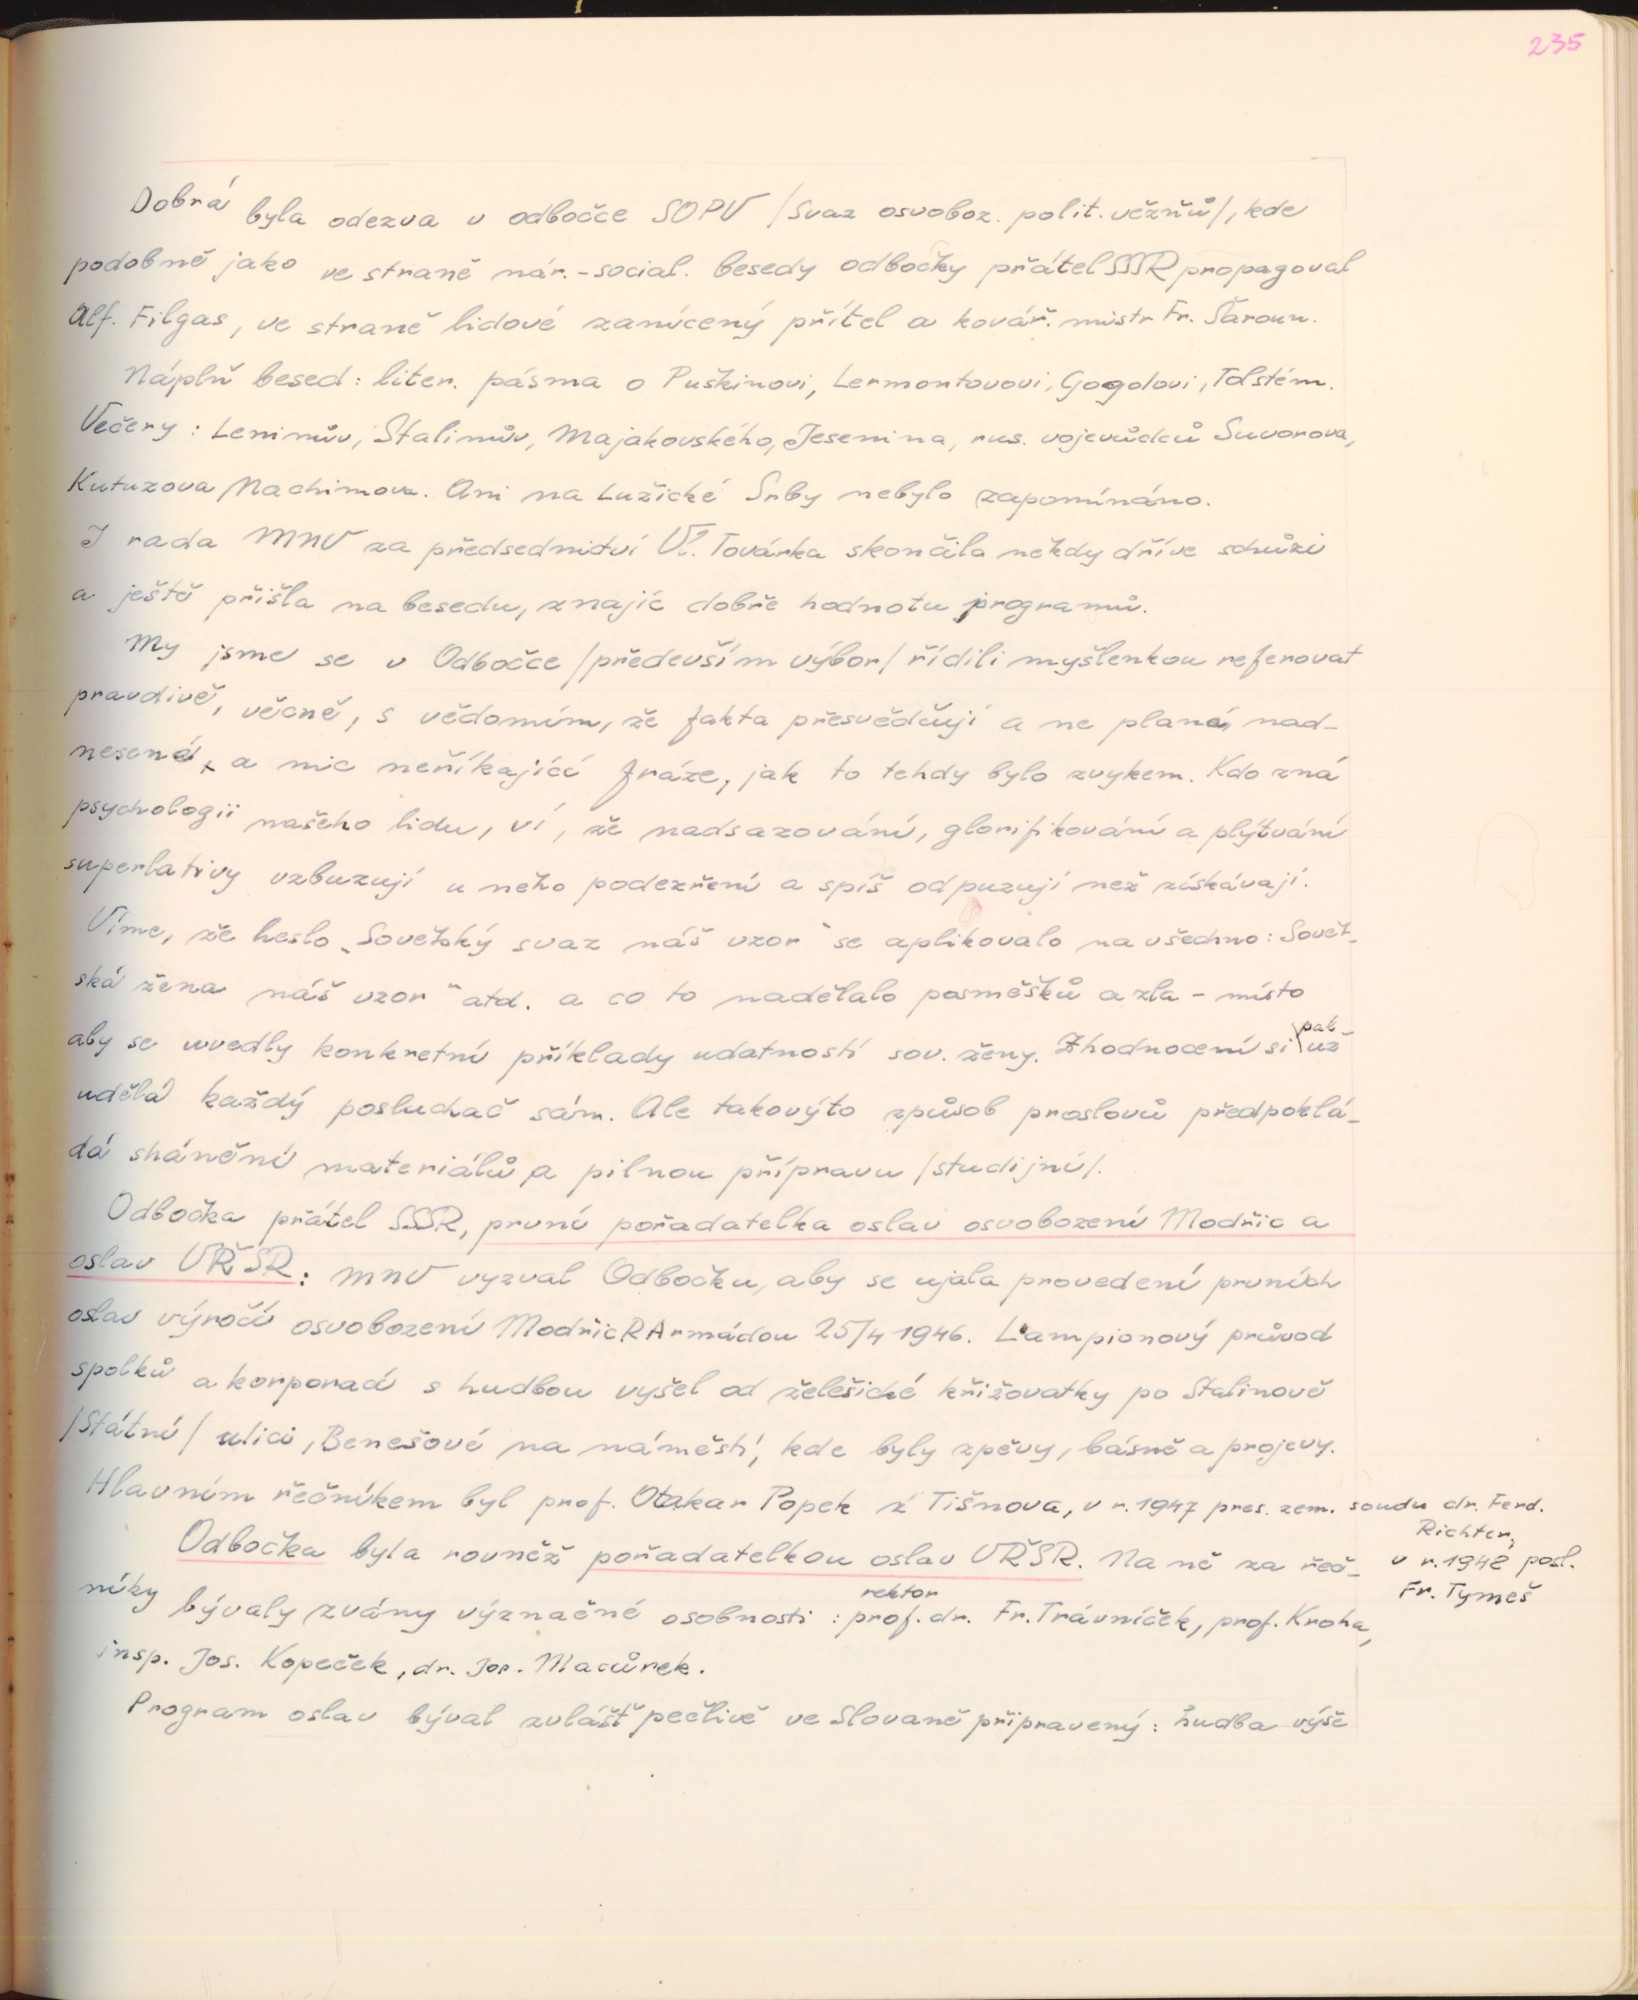 235
Dobrá byla odezva v odbočce SOPV /Svaz osvoboz. polit. vězňů/, kde
podobně jako ve straně nár.-social. besedy odbočky přátel SSSR propagoval
Alf. Filgas, ve straně lidové zanícený přítel a kovář. mistr Fr. Šaroun.
Náplň besed: liter. pásma o Puškinovi, Lermontovovi, Gogolovi, Tolstém.
Večery: Leninův, Stalinův, Majakovského, Jesenina, rus. vojevůdců Suvorova,
Kutuzova Nachimova. Ani na Lužické Srby nebylo zapomínáno.
I rada MNV za předsednictví Vl. Továrka skončila někdy dříve schůzi
a ještě přišla na besedu, znajíc dobře hodnotu programů.
My jsme se v Odbočce /především výbor/ řídili myšlenkou referovat
pravdivě, věcně, s vědomím, že fakta přesvědčují a ne plané, nad-
nesené, a nic neříkající fráze, jak to tehdy bylo zvykem. Kdo zná
psychologii našeho lidu, ví, že nadsazování, glorifikování a plýtvání
superlativy vzbuzují u něho podezření a spíš odpuzují než získávají.
Víme, že heslo „Sovětský svaz náš vzor" se aplikovalo na všechno: Sovět-
ská žena náš vzor" atd. a co to nadělalo posměšků a zla - místo
aby se uvedly konkretní příklady udatnosti sov. ženy. Zhodnocení si pak už
udělá každý posluchač sám. Ale takovýto způsob proslovů předpoklá-
dá shánění materiálů a pilnou přípravu /studijní/.
Odbočka přátel SSSR, první pořadatelka oslav osvobození Modřic a
oslav VŘSR: MNV vyzval Odbočku, aby se ujala provedení prvních
oslav výročí osvobození Modřic R Armádou 25/4 1946. Lampionový průvod
spolků a korporací s hudbou vyšel od želešické křižovatky po Stalinově
/Státní/ ulici, Benešové na náměstí, kde byly zpěvy, básně a projevy.
Hlavním řečníkem byl prof. Otakar Popek z Tišnova, v r. 1947 pres. zem. soudu dr. Ferd.
Richter,
v r. 1948 posl.
Fr. Tymeš
Odbočka byla rovněž pořadatelkou oslav VŘSR. Na ně za řeč-
níky bývaly zvány význačné osobnosti: rektor prof. dr. Fr. Trávníček, prof. Kroha,
insp. Jos. Kopeček, dr. Jos. Macůrek.
Program oslav býval zvlášť pečlivě ve Slovaně připravený: hudba výše